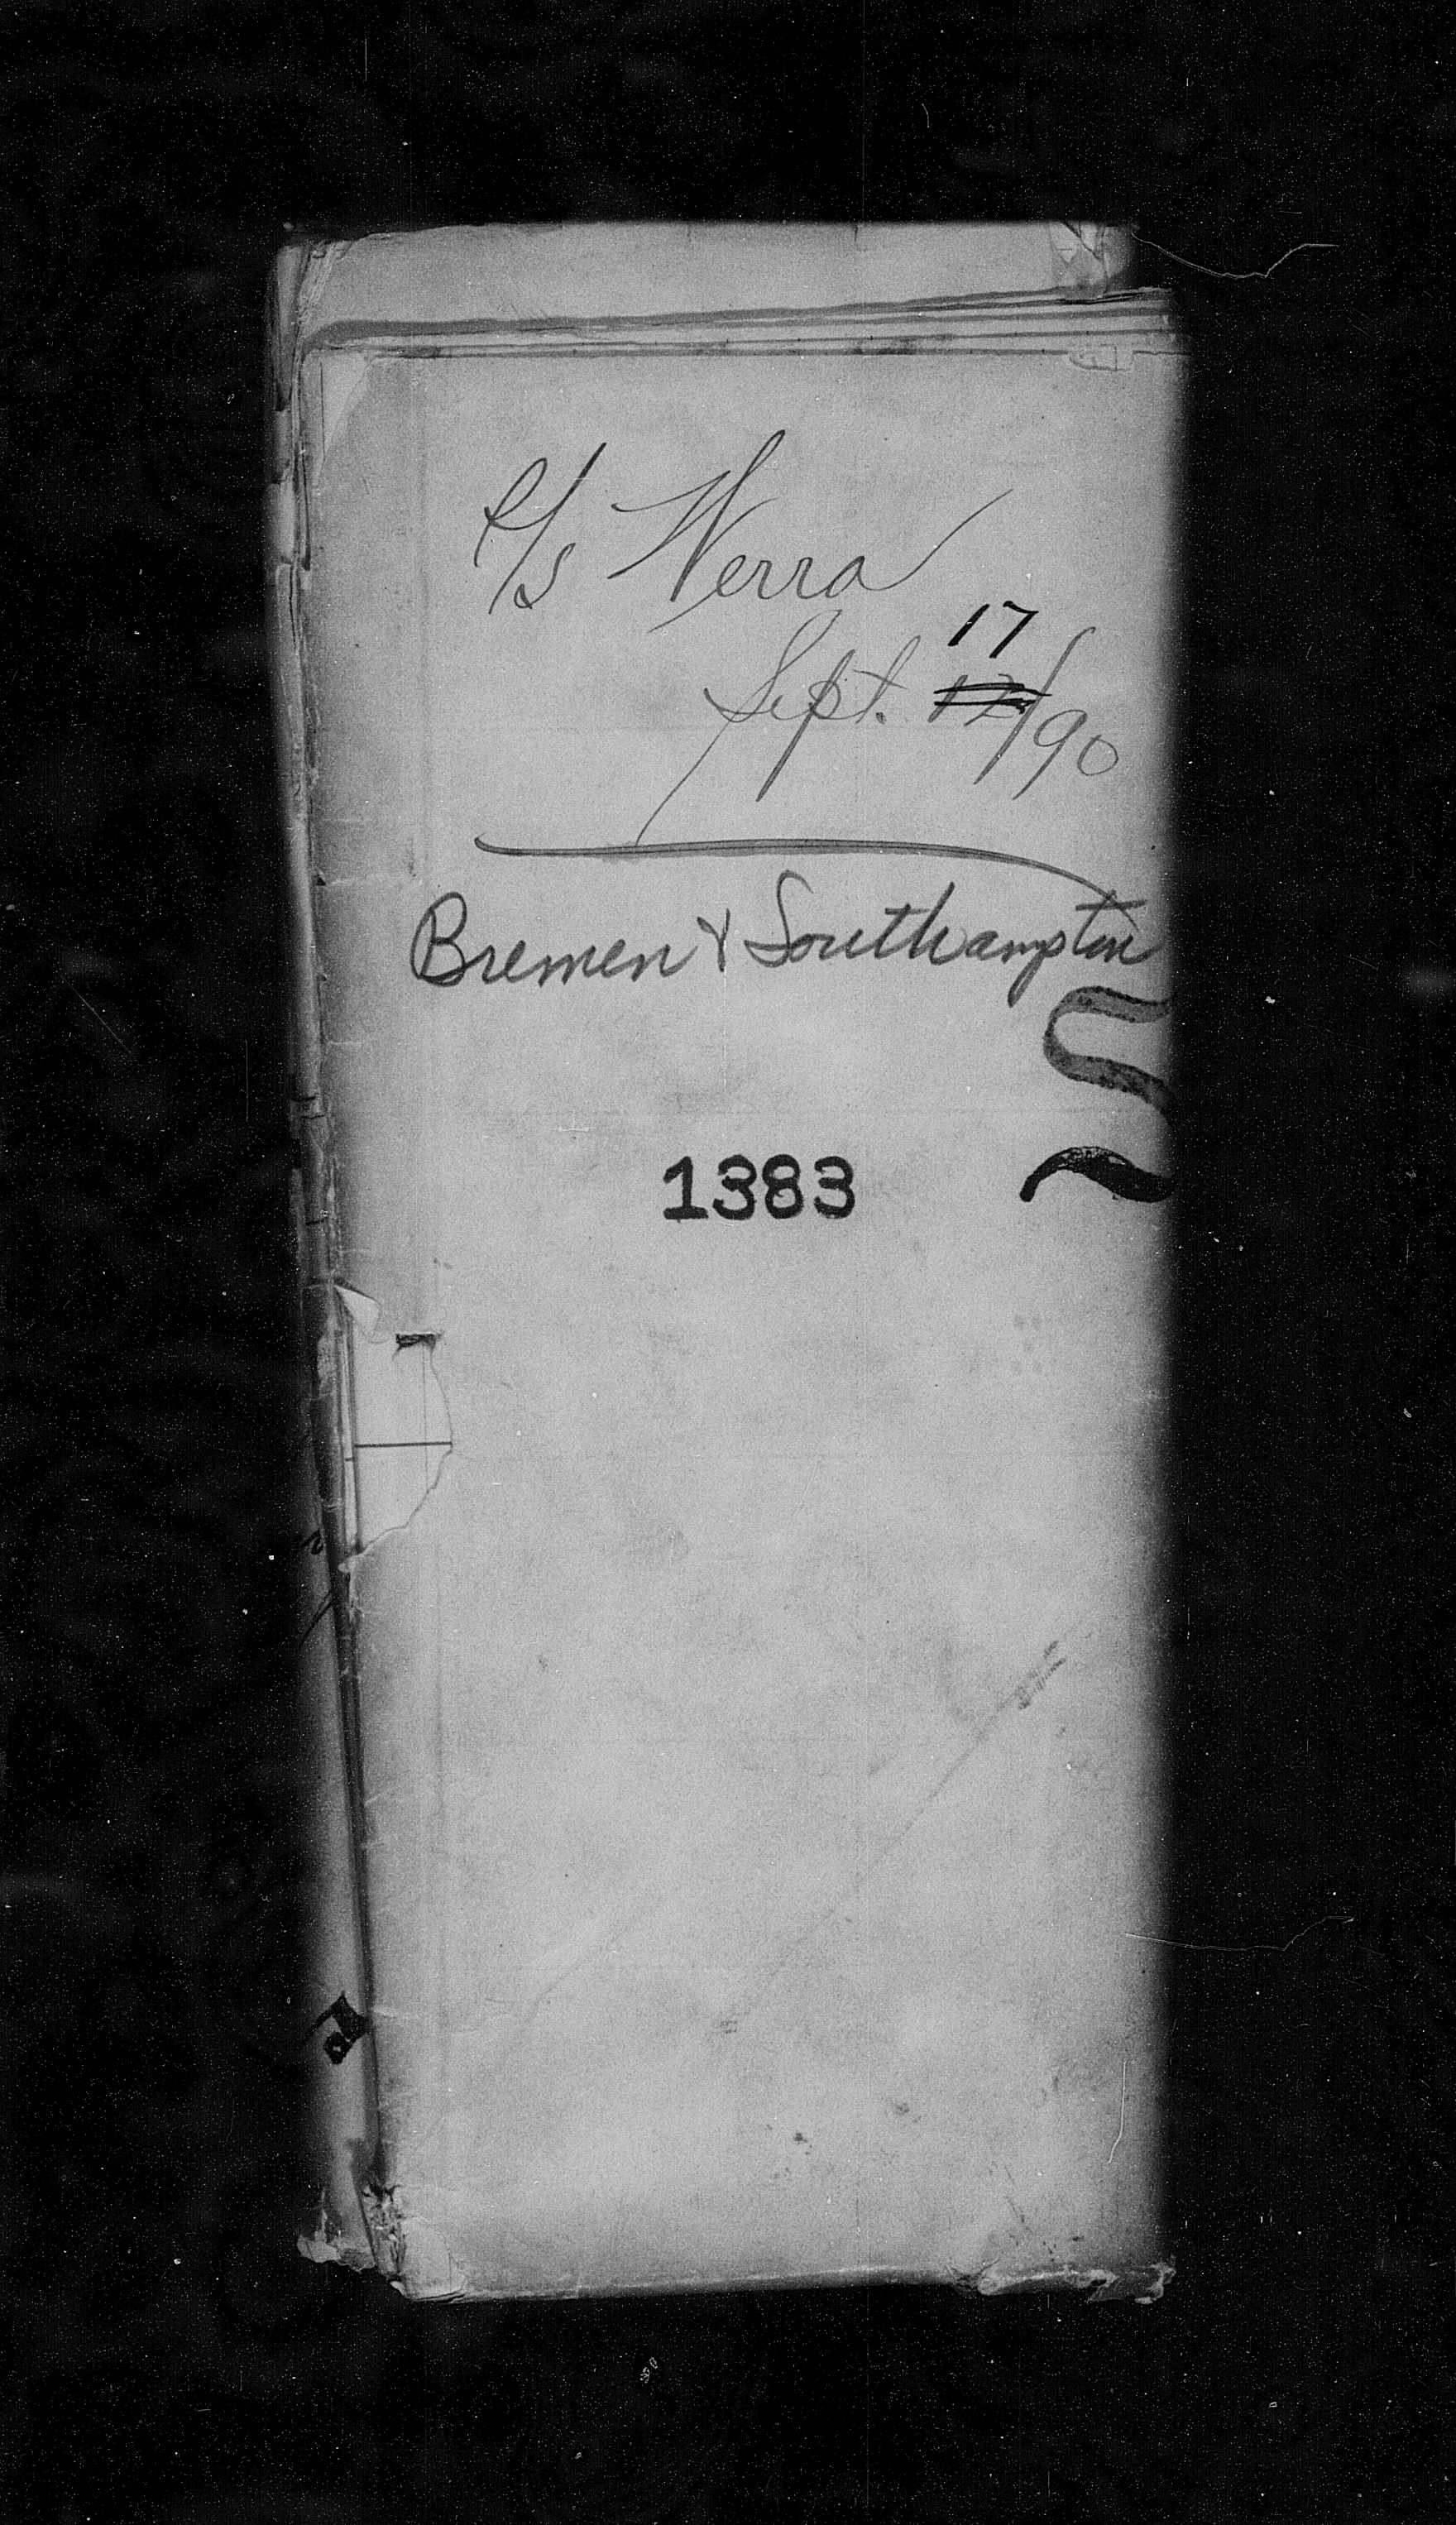 S/S Werra
17
Sept. 12/90
Bremen & Southampton
1383